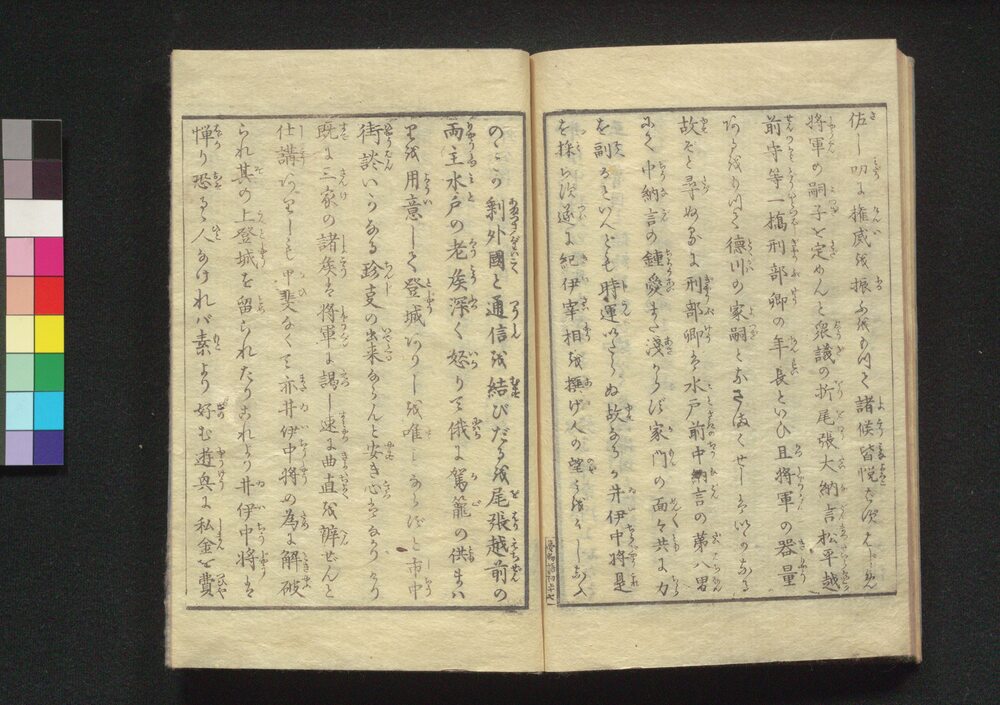 佐し叨に権威を振ふを以て諸侯皆悦ばず
将軍の嗣子を定めんと衆議の折尾張大納言松平越
前守等一橋刑部卿の年長といひ且将軍の器量
あるをもつて徳川の家嗣となさまくせしは
故ぞと尋ぬるに刑部卿は水戸前中納言の第八男
にて中納言の鍾愛また浅からず家門の面々共に力
を副るといへども時運いたらぬ故なるか井伊中将是
を採らず遂に紀伊宰相を撰げ人の望を
のみか剰外國と通信を結びたるを尾張越前の
両主水戸の老矦深く怒りて俄に駕籠の供まは
りを用意して登城ありしを唯しあらずと市中
街談いかなる珍支の出来ならんと安き心はなかりけり
既に三家の諸矦は将軍に謁し速に曲直を辨せんと
仕講ありしも甲斐なくて亦井伊中将の為に解破
られ其の上登城を留られたりこれより井伊中将は
憚り恐るゝ人なければ素より好む遊興に私金を費